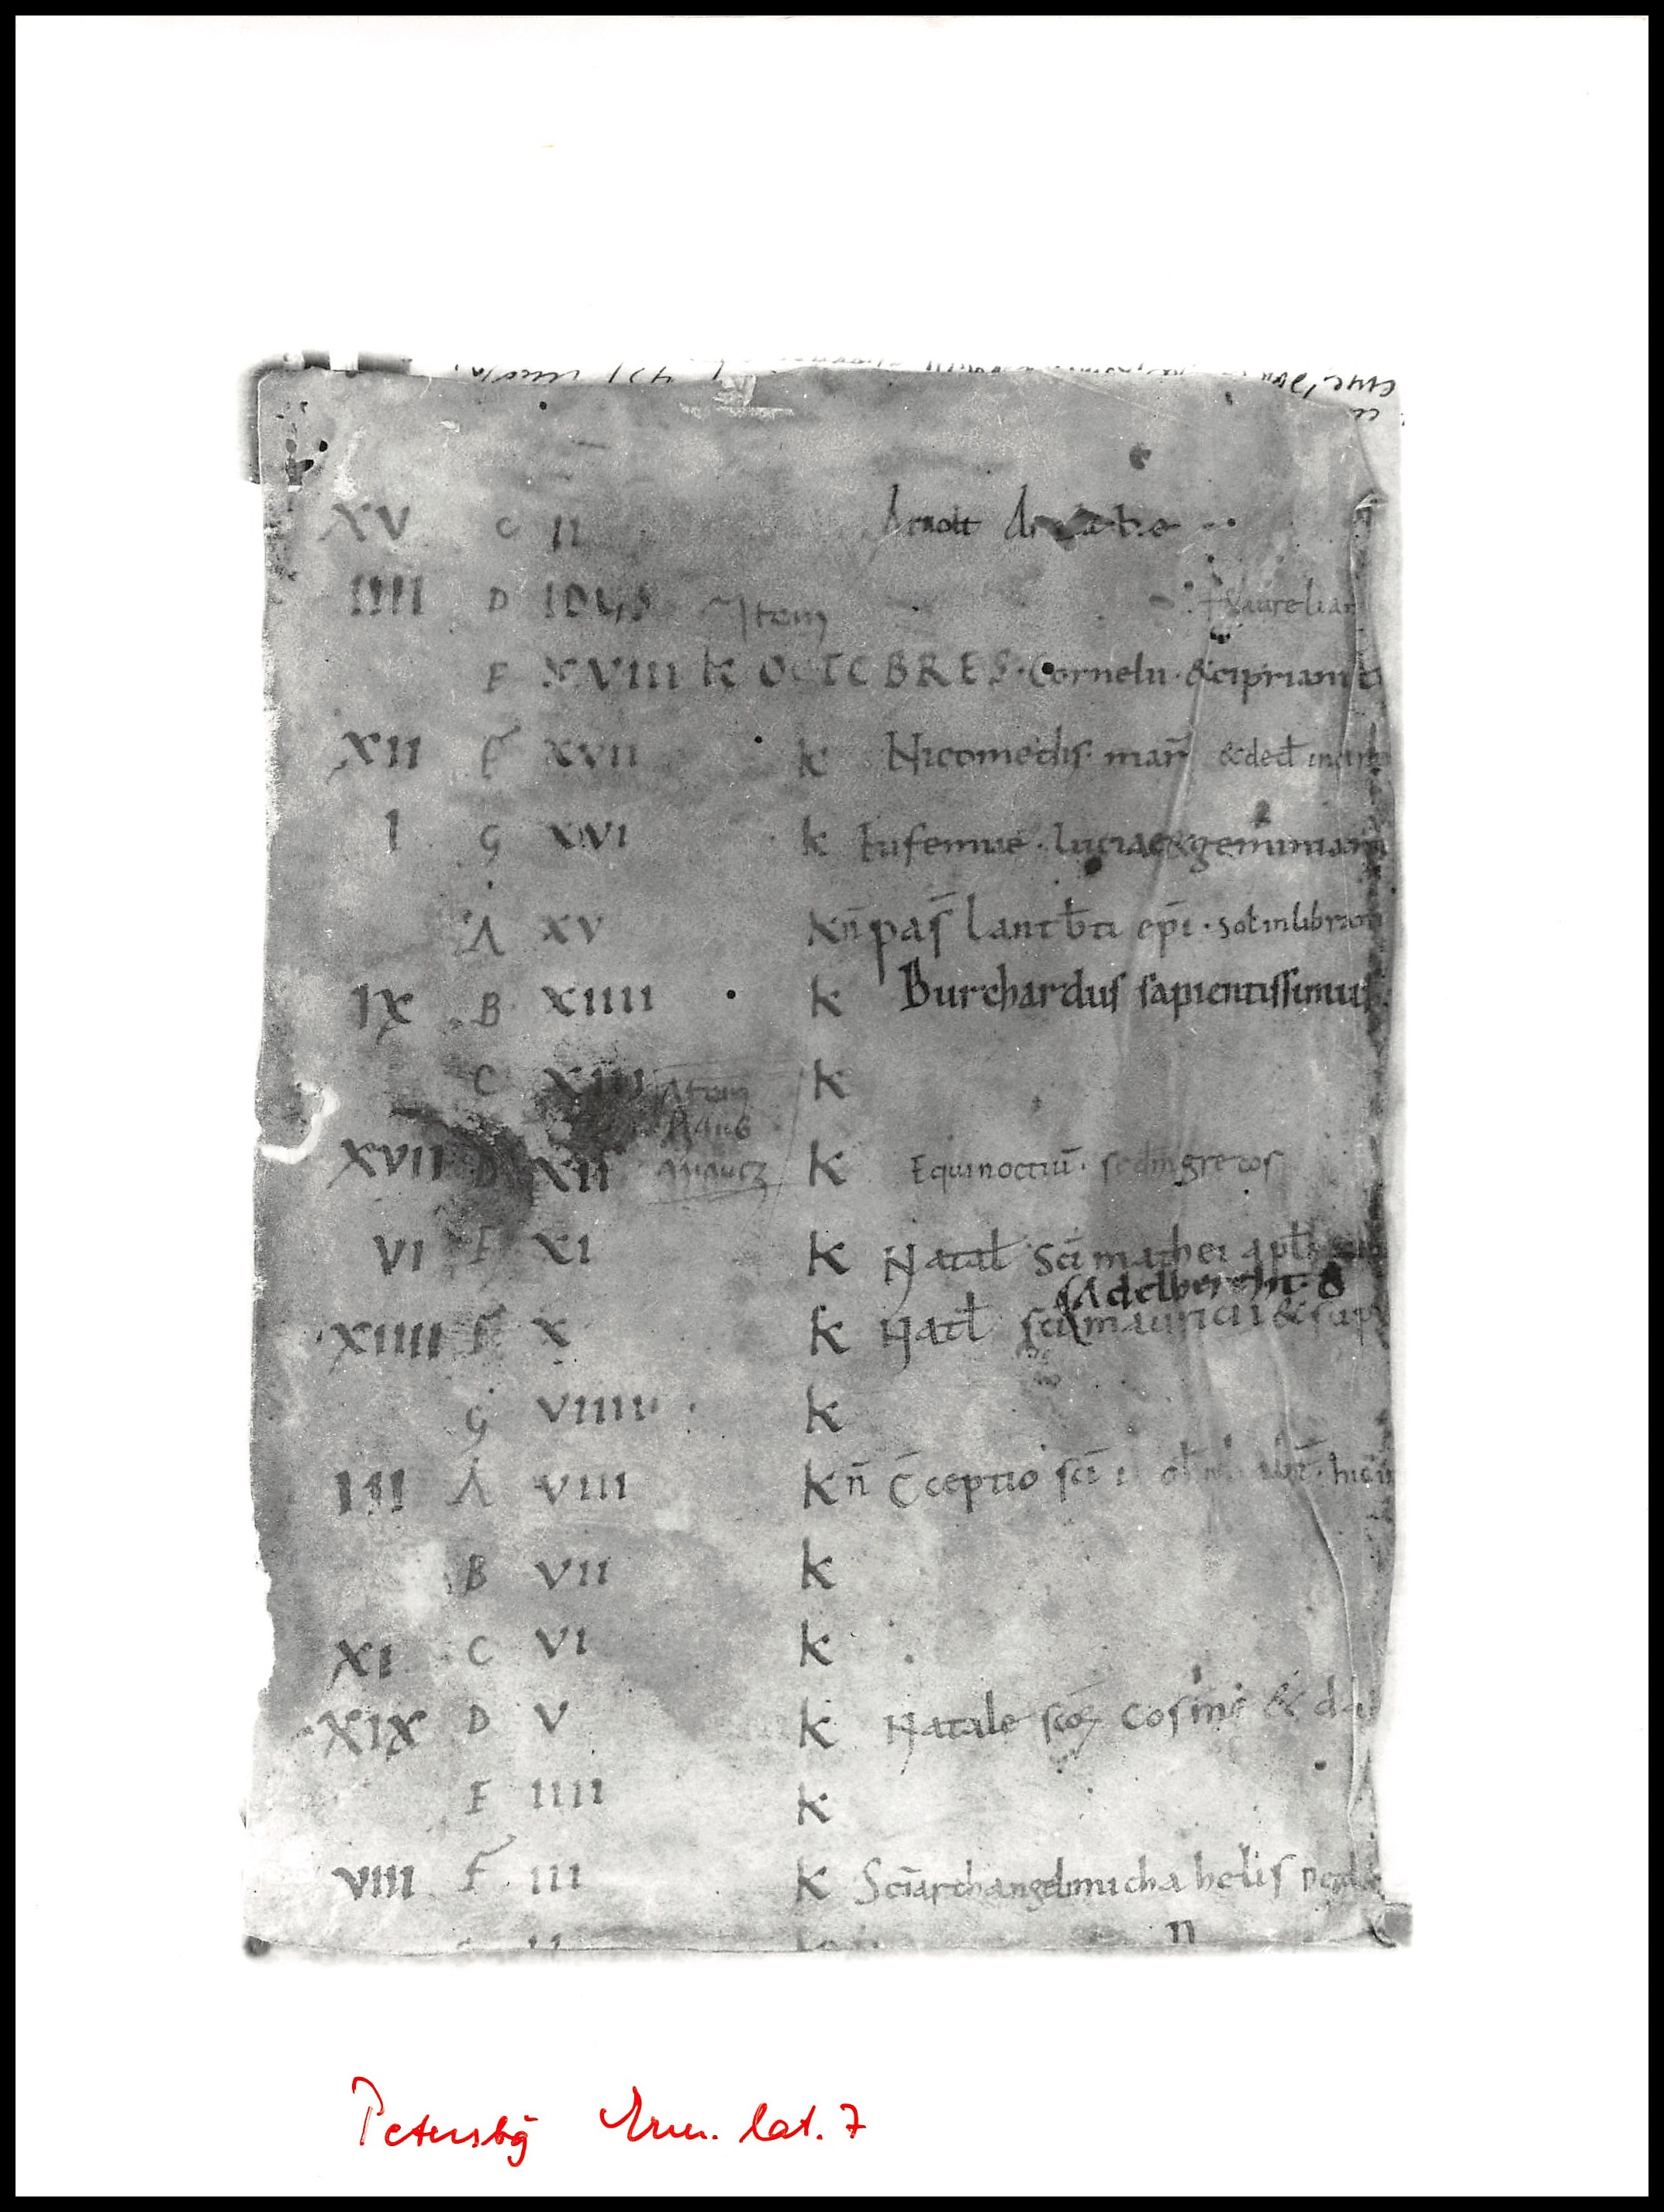 XV C II Arnolt
IIII D IDUS Item Aurelian
E XVIII k OCTOBRES · Cornelii · & cipriani
XII F XVII k Nicomedis · mar̄ & ded̄
I G XVI k Eufemiae · luciae & geminiani
A XV kn̄ pas̄ lantb̄ti ep̄i · sol in libram
IX B XIIII k Burchardus sapientissimus
C XIII k
Item
XVII D XII k Equinoctiū · scdm̄ grecos
VI E XI k Natal̄ Sc̄i mathei apl̄i
Adelbercht
XIIII F X k Natl̄ sc̄i mauricii &
G VIIII k
III A VIII kn̄ C̄ceptio sc̄i
B VII k
XI C VI k
XIX D V k Natale sc̄oꝝ cosme &
E IIII k
VIII F III k Sc̄i archangeli michahelis
Petersbḡ lat. 7